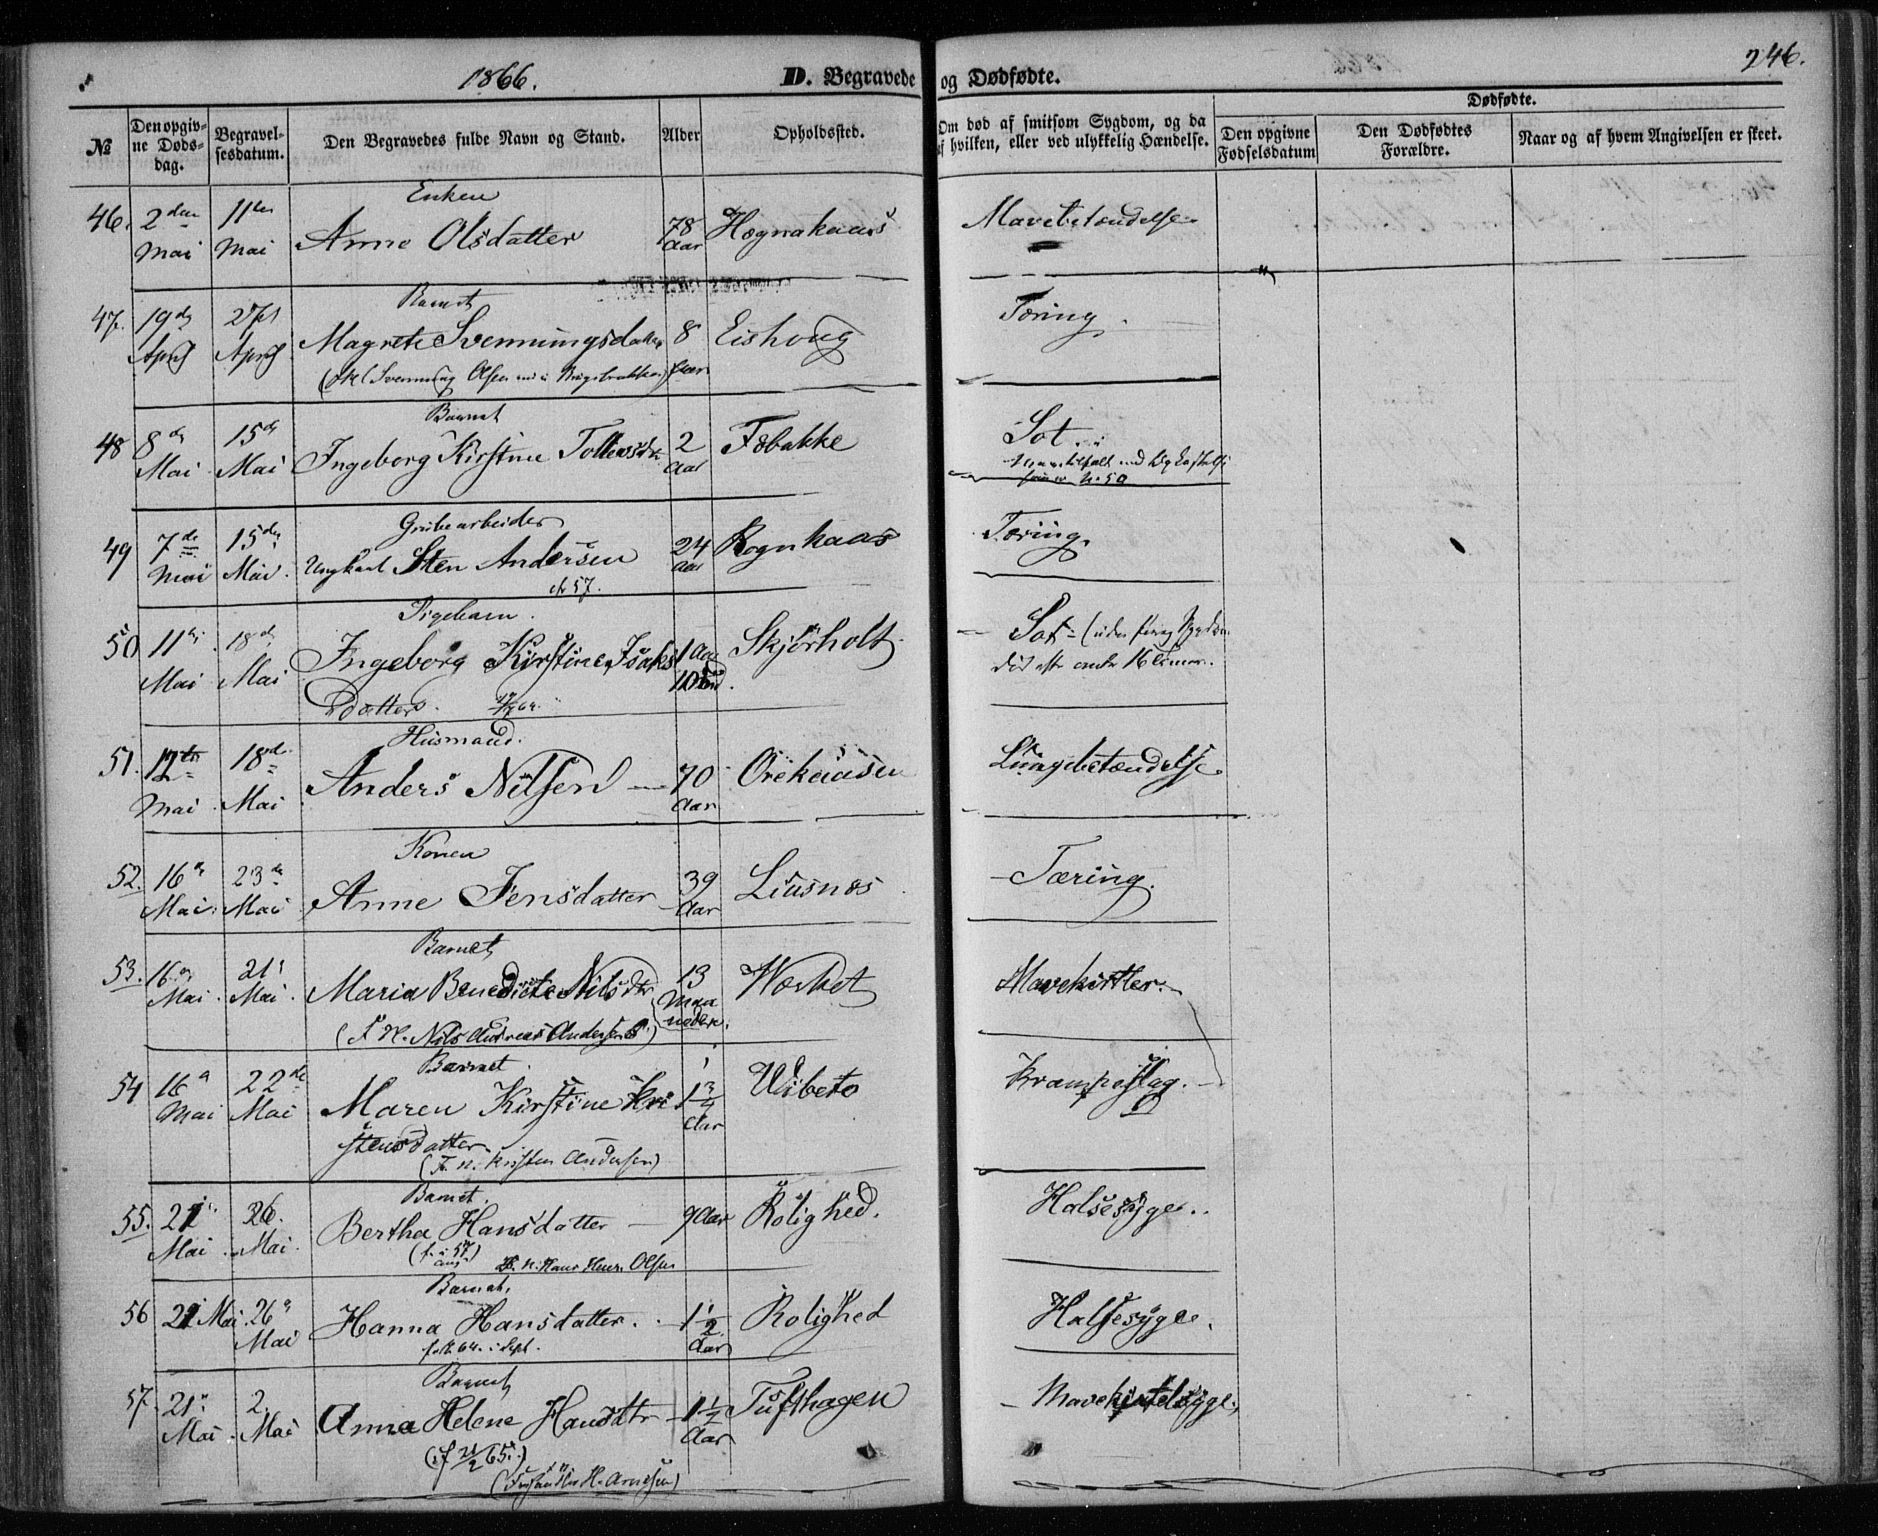 1866.
D. Begravede og Dødfødte.
246.
№
Den opgivne Dødsdag.
Begravelsesdatum.
Den Begravedes fulde Navn og Stand.
Alder
Opholdssted.
Om død af smitsom Sygdom, og da af hvilken, eller ved ulykkelig Hændelse.
Dødfødte.
Den opgivne Fødselsdatum
Den Dødfødtes Forældre.
Naar og af hvem Angivelsen er skeet.
Enken
46. 2den Mai 11te Mai Anne Olsdatter 78 Aar Høgnakaas Mavebetændelse
Barnet
47. 19de April 27de April Magrete Svenningsdatter 8 Aar Eishoug Tæring.
Svenning Olsen
Barnet
48 8de Mai 15de Mai Ingeborg Kirstine Tollevsdtr 2 Aar Fobakke Sot.
No 50
Grubearbeider
49 7de Mai 15de Mai Ungkarl Sten Andersen 24 Aar Rognkaas Tæring.
cfr 57.
Pigebarn.
50 11te Mai 18de Mai Ingeborg Kirstine Isaks 1 Aar Skjørholt Sot
Datter 10 Md.
Husmand.
51. 12te Mai 18de Mai Anders Nilsen 70 Aar Orekaasen Lungebetændelse
Konen
52. 16de Mai 23de Mai Anne Jensdatter 39 Aar Liusnæs Tæring.
Barnet
53. 16de Mai 21de Mai Maria Benedicte Nilsdtr 13 Maaneder. Værket Mavekirtler.
(F. N. Nils Andreas Andersen)
Barnet.
54 16de Mai 22de Mai Maren Kirstine Kri 1 3/4 Aar Vibeto Krampeslag.
stensdatter
(F. n. Kristen Andersen)
Barnet.
55. 21de Mai 26. Mai. Bertha Hansdatter 9 Aar Rolighed. Halsesyge.
(f. i 57 aug) F. N. Hans Henr. Olsen
Barnet.
56 21 Mai 26de Mai Hanna Hansdatter. 1 1/2 Aar Rolighed Halsesyge.
f. 64. i Sept.
Barnet
57. 21de Mai 2. Mai Anna Helene Hansdtr 1 1/2 Aar Tufthagen Mavekirtelsyge.
(f 21/2 65.)
H. Arnesen)